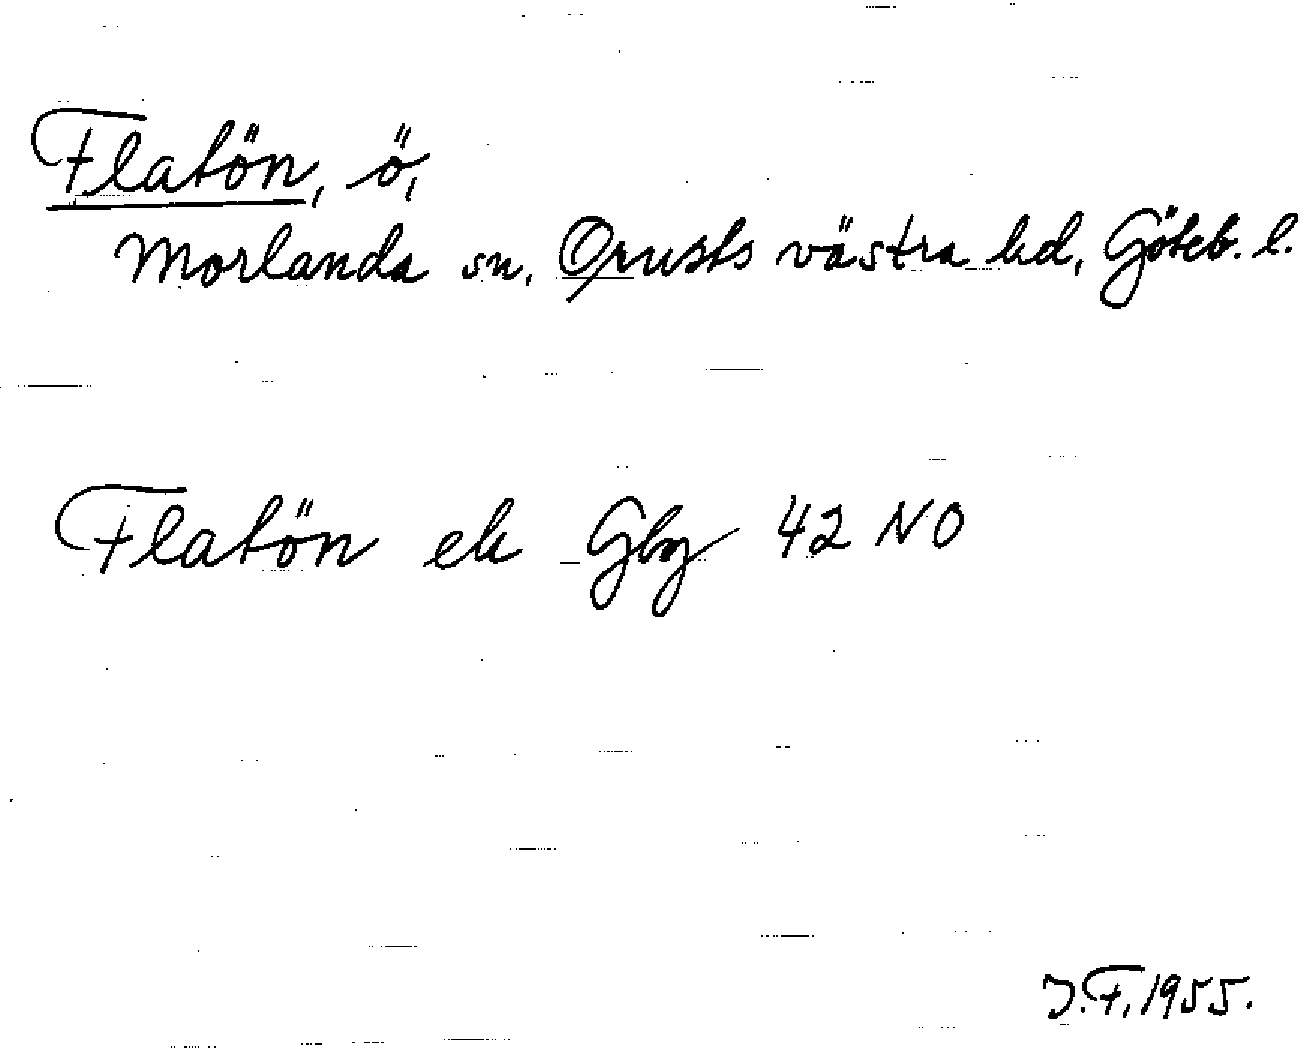 Flatön, ö,
Morlanda sn, Orusts västra hd, Göteb. l.
Flatön ek Gbg 42 NO
J.F. 1955.